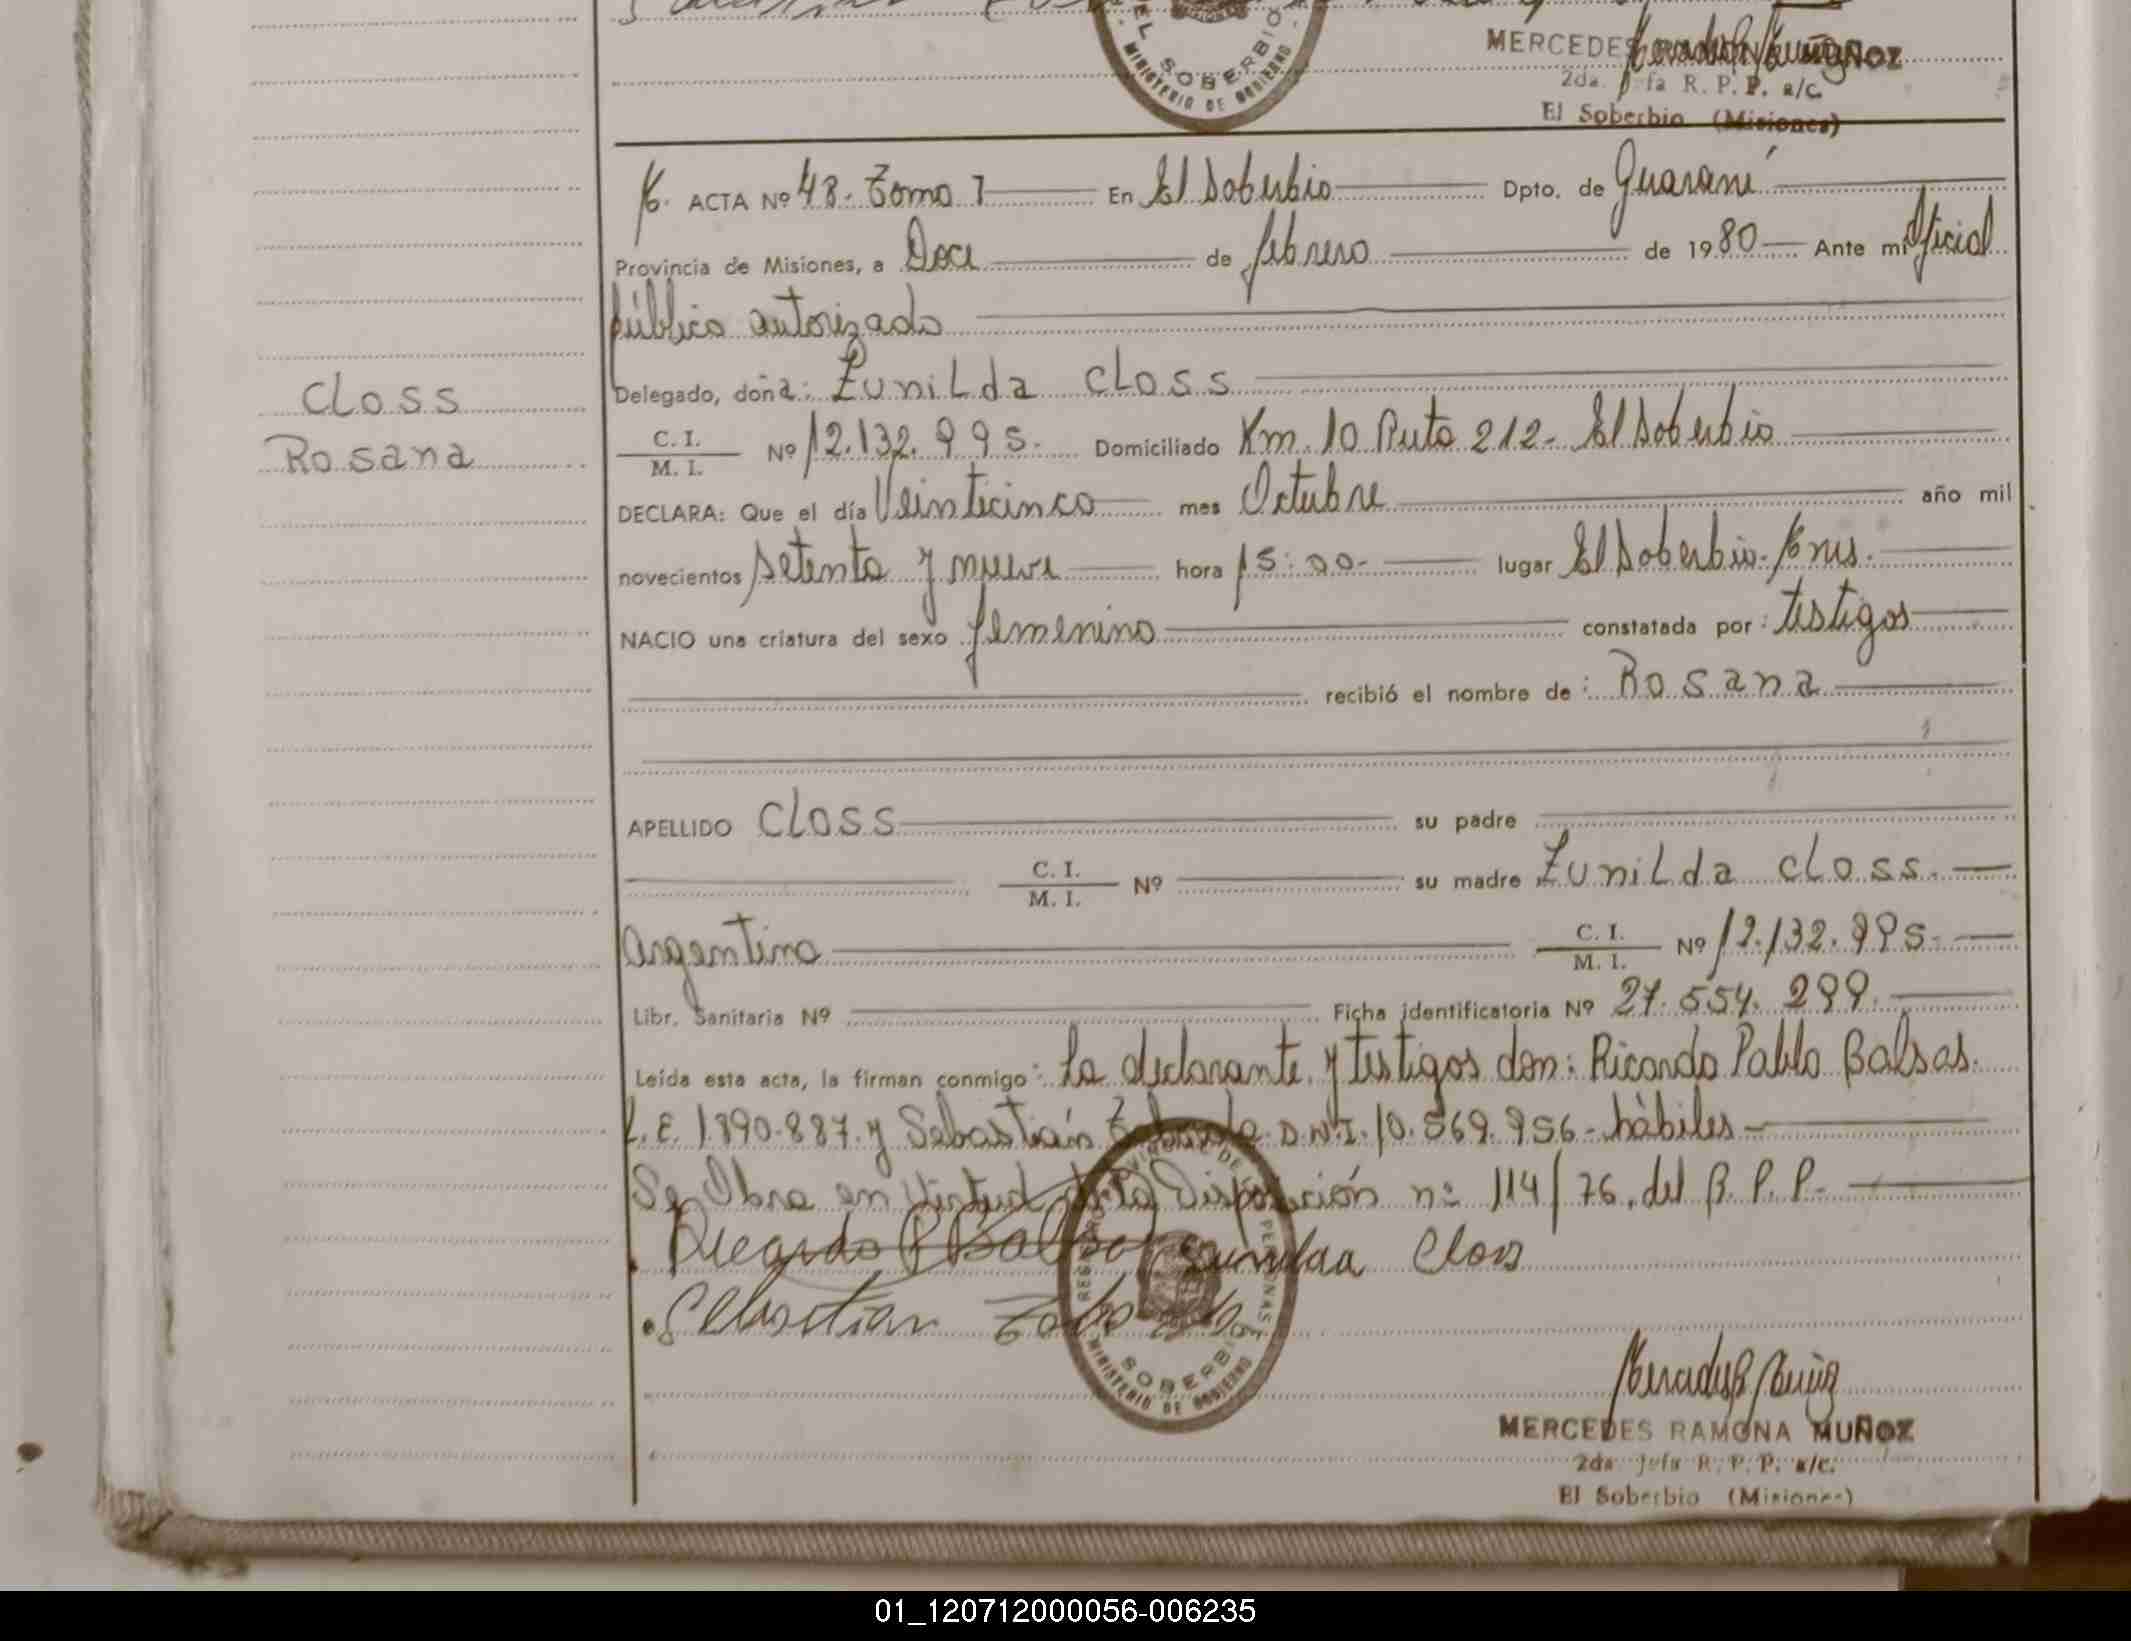 EL SOBERBIO
MINISTERIO DE GOBIERNO
MERCEDES RAMONA MUÑOZ
2da. Jefa R. P. P. a/c.
El Soberbio (Misiones)
ACTA Nº 48. Tomo I En El Soberbio Dpto. de Guaraní
Provincia de Misiones, a Doce de febrero de 1980 Ante mí Oficial
público autorizado
Delegado, doña: Zunilda Closs
Closs
Rosana
C. I.
M. I. Nº 12.132.995. Domiciliado Km. 10 Ruta 212- El Soberbio
DECLARA: Que el día Veinticinco mes Octubre año mil
novecientos setenta y nueve hora 15:00- lugar El Soberbio-Mnes.
NACIO una criatura del sexo femenino constatada por: testigos
recibió el nombre de: Rosana
APELLIDO Closs su padre
C. I.
M. I. Nº su madre Zunilda Closs.
Argentina C. I.
M. I. Nº 12.132.995.
Libr. Sanitaria Nº Ficha identificatoria Nº 27.554.299.
Leída esta acta, la firman conmigo: La declarante y testigos don: Ricardo Pablo Balsas.
L.E. 1.890.887. y Sebastián D.N.I. 10.569.956- hábiles
Se Obra en Virtud de la Disposición nº 114/76. del R. P. P.
Ricardo P Balsas Zunilda Closs
Sebastian
SOBERBIO
MINISTERIO DE GOBIERNO
MERCEDES RAMONA MUÑOZ
2da Jefa R. P. P. a/c.
El Soberbio (Misiones)
01_120712000056-006235